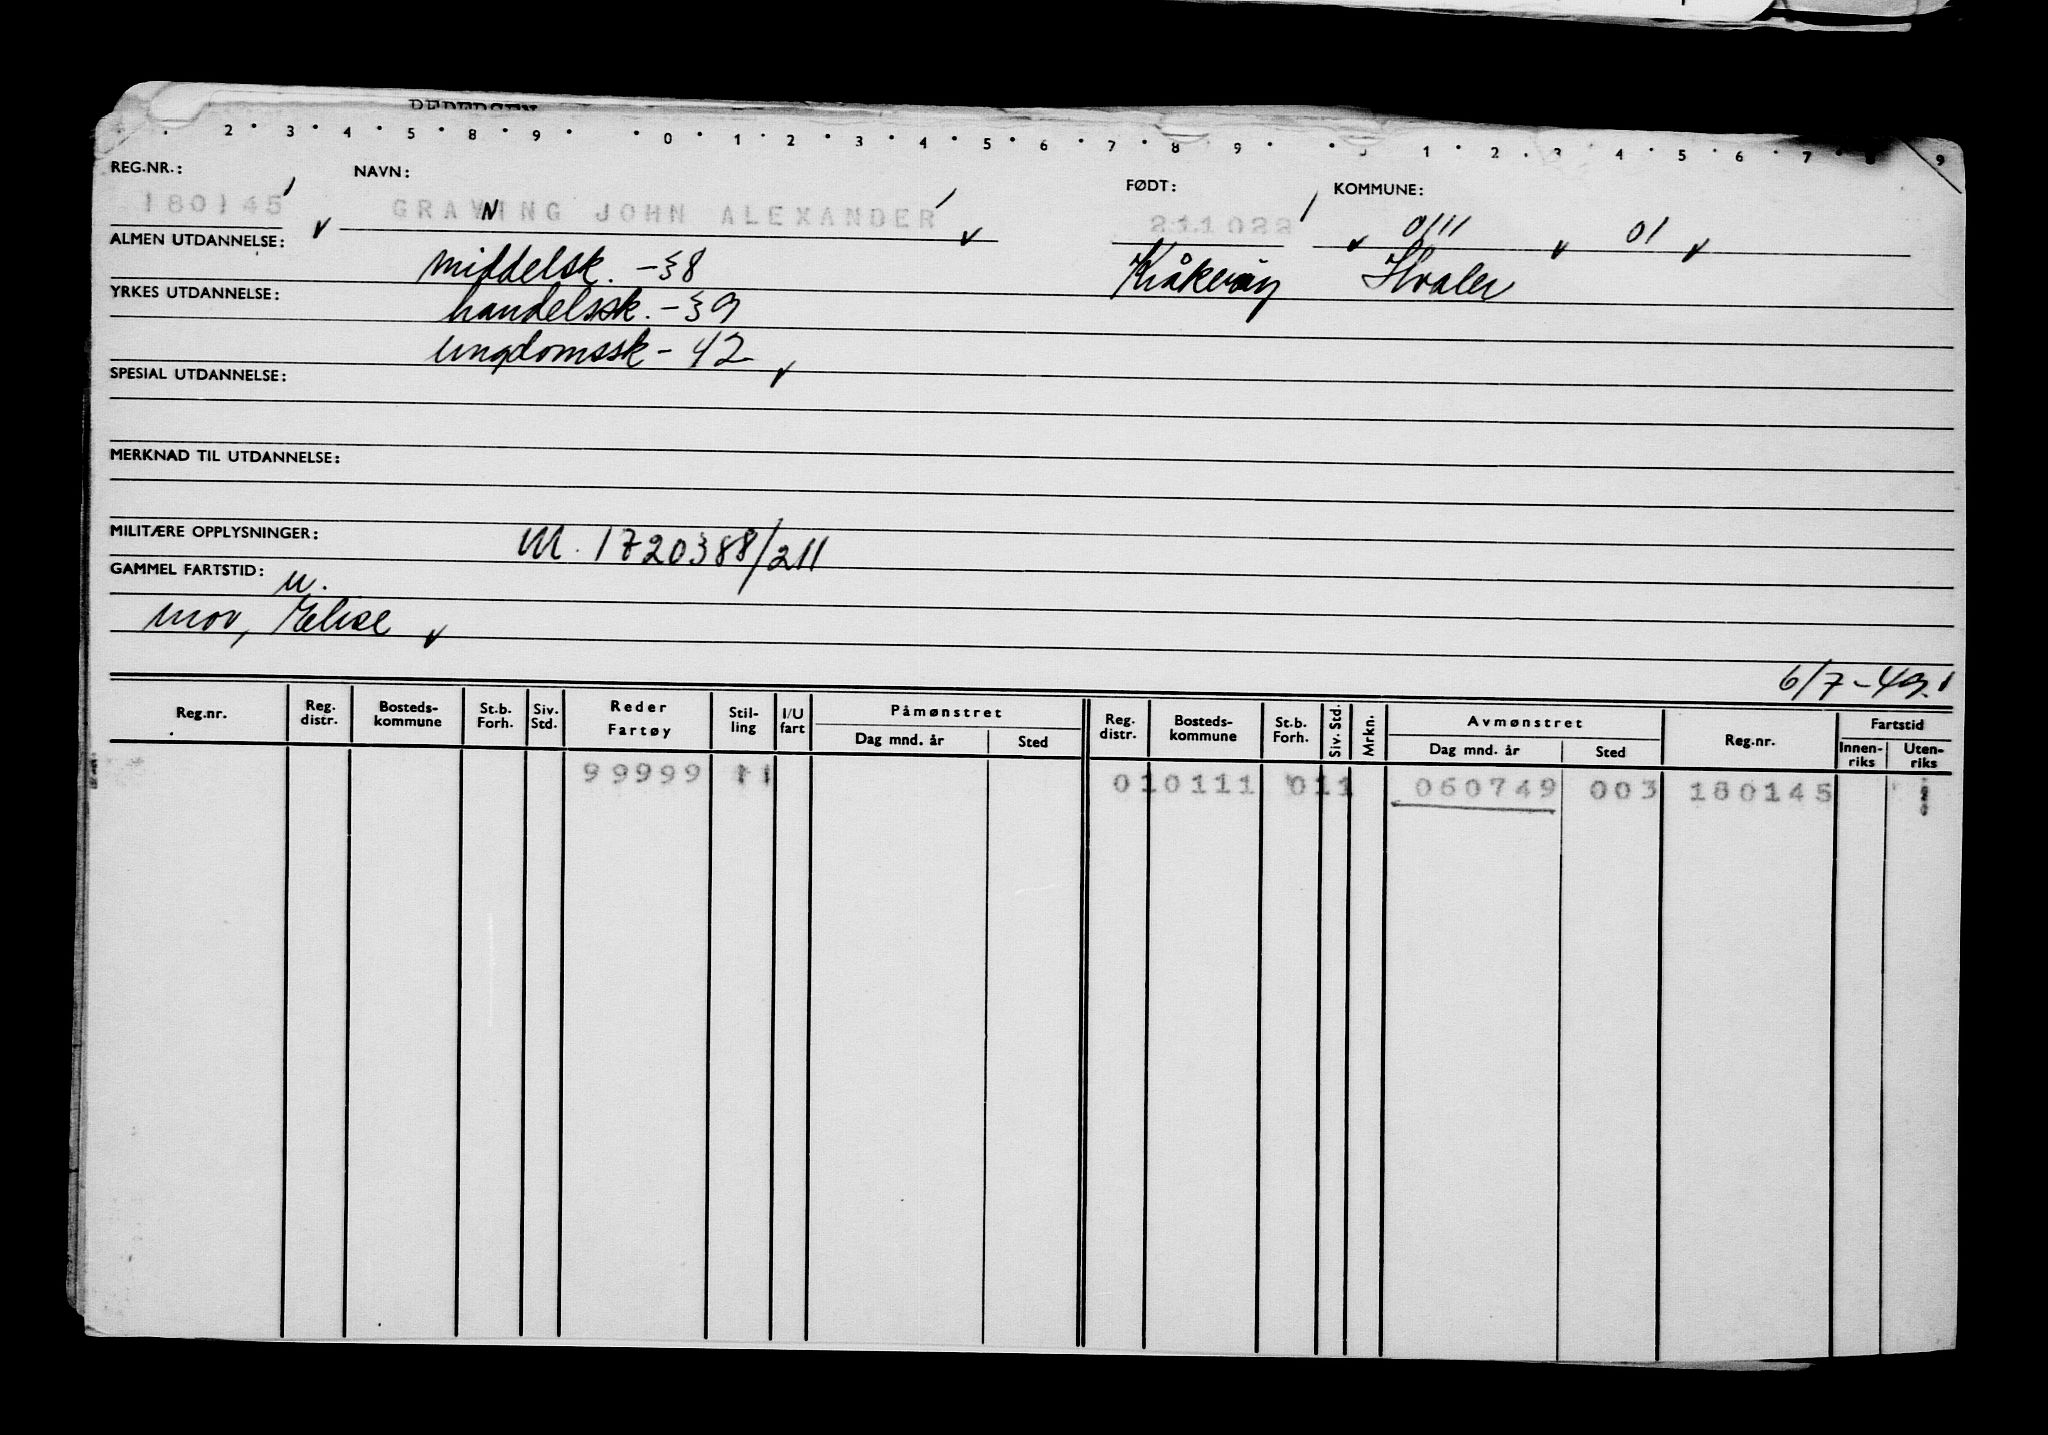 2 • 3 • 4 • 5 • 8 • 9 • • 0 • 1 • 2 • 3 • 4 • 5 • 6 • 7 • 8 • 9 • • 1 • 2 • 3 • 4 • 5 • 6 • 7 • 8 • 9
REG.NR.: NAVN: FØDT: KOMMUNE:
180145 GRAVNING JOHN ALEXANDER 211022 0111 01
ALMEN UTDANNELSE: middelsk. -38 Kråkerøy Hvaler
YRKES UTDANNELSE: handelssk. -39
ungdomssk - 42
SPESIAL UTDANNELSE:
MERKNAD TIL UTDANNELSE:
MILITÆRE OPPLYSNINGER: M. 1720388/211
GAMMEL FARTSTID: u.
mor, Elise
6/7-49.
Reg.nr. Reg. distr. Bosteds-kommune St.b. Forh. Siv. Std. Reder Fartøy Stil-ling I/U fart Påmønstret Dag mnd. år Sted Reg. distr. Bosteds-kommune St.b. Forh. Siv. Std. Mrkn. Avmønstret Dag mnd. år Sted Reg.nr. Fartstid Innen-riks Uten-riks
99999 11 010111 011 060749 003 180145